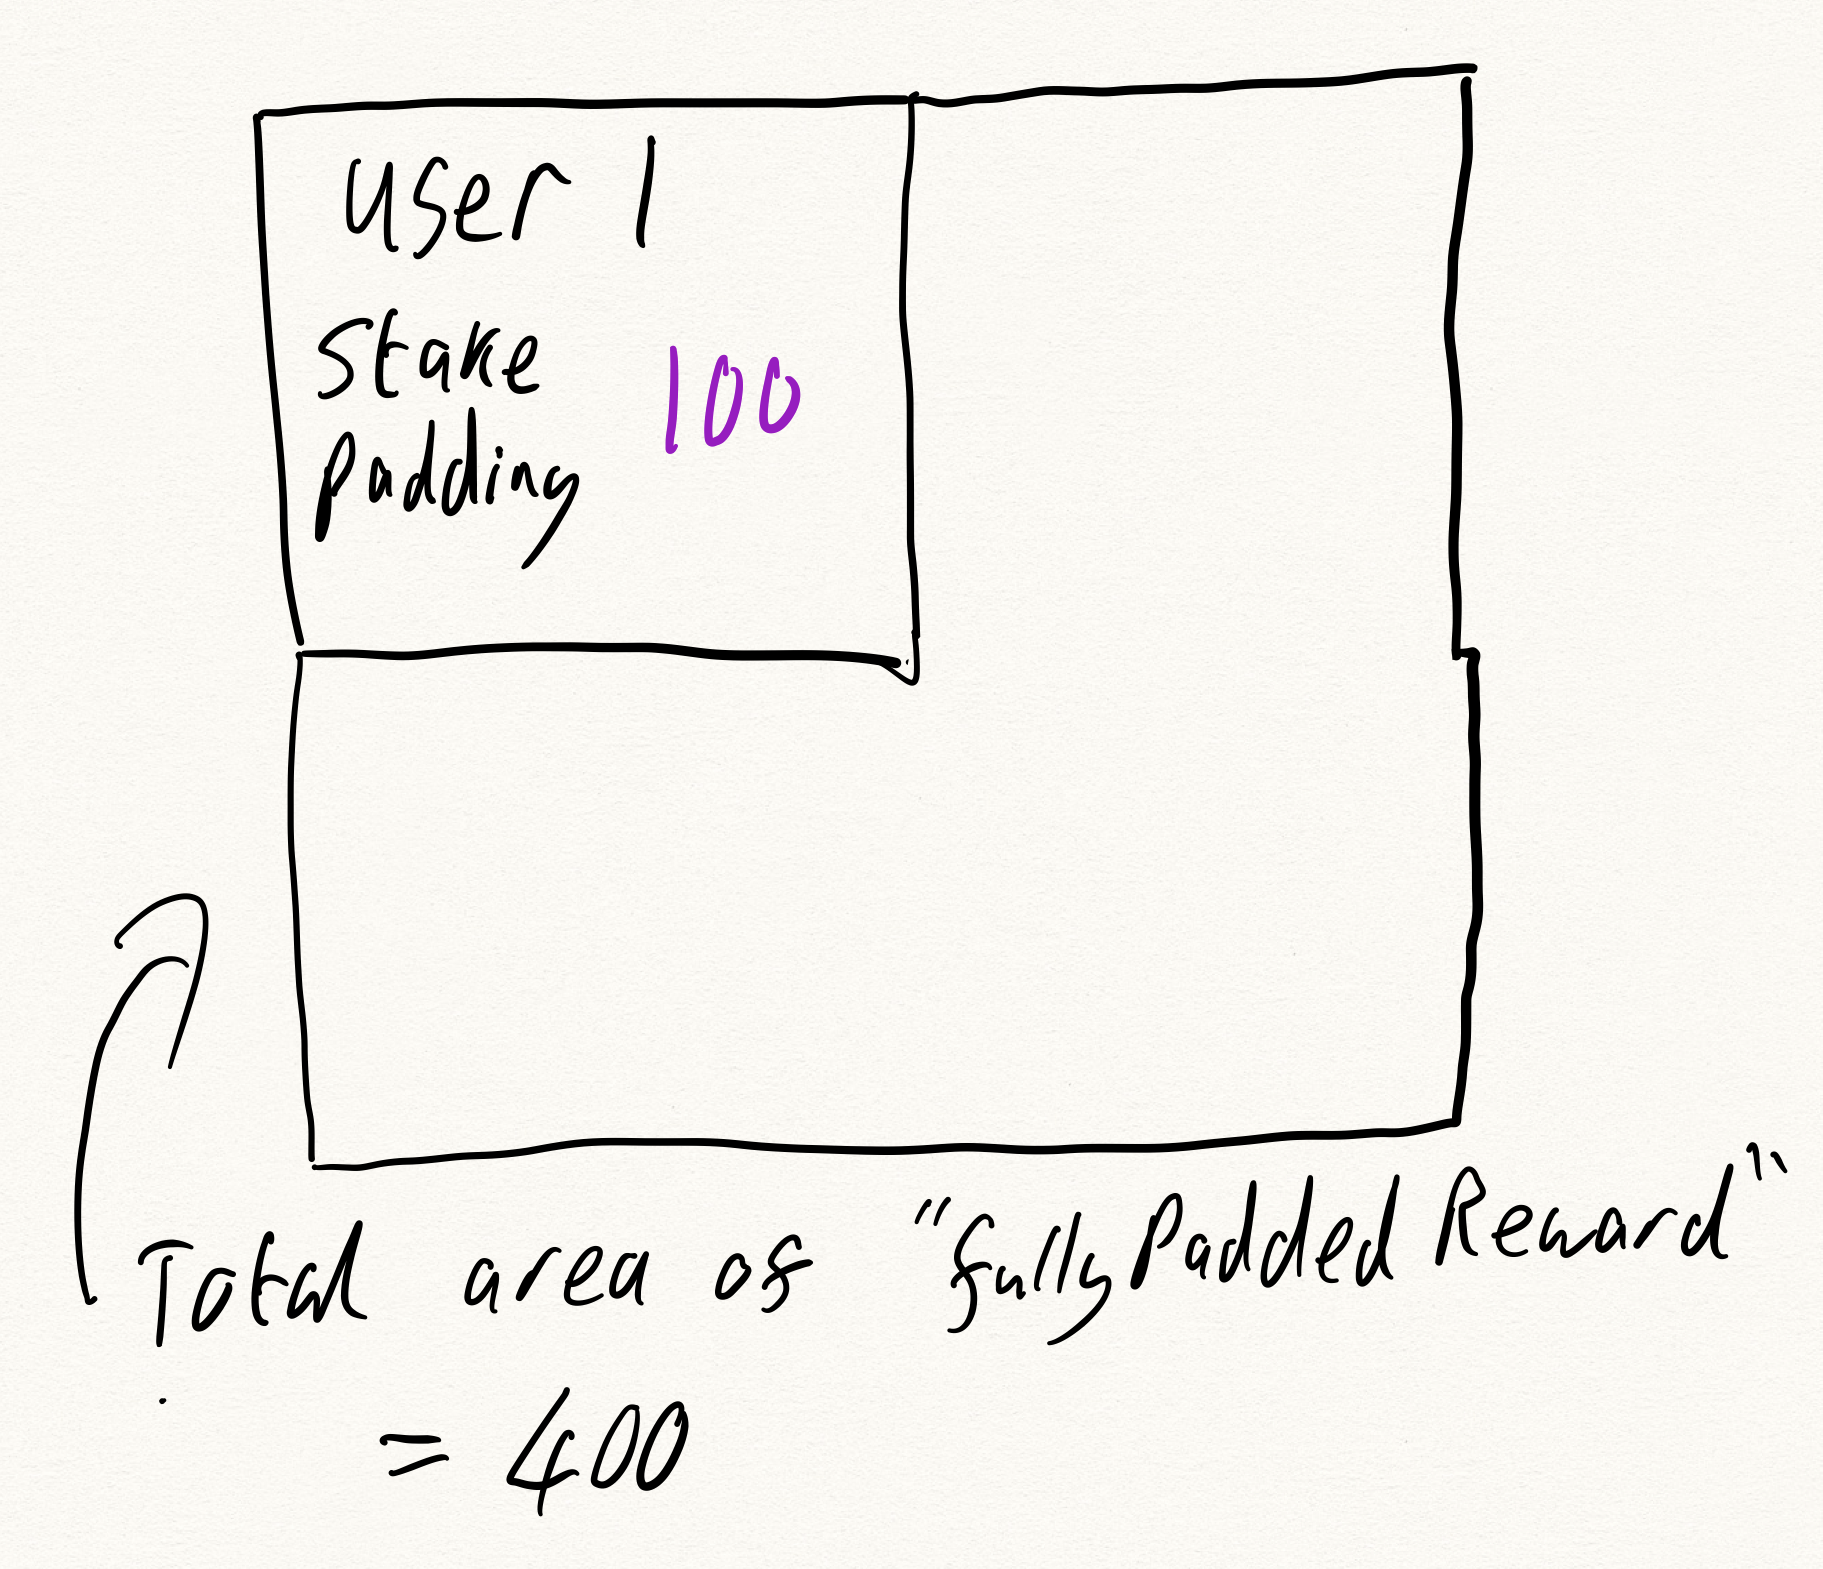 user 1
stake
padding 100
Total area of "fullyPaddedReward"
= 400